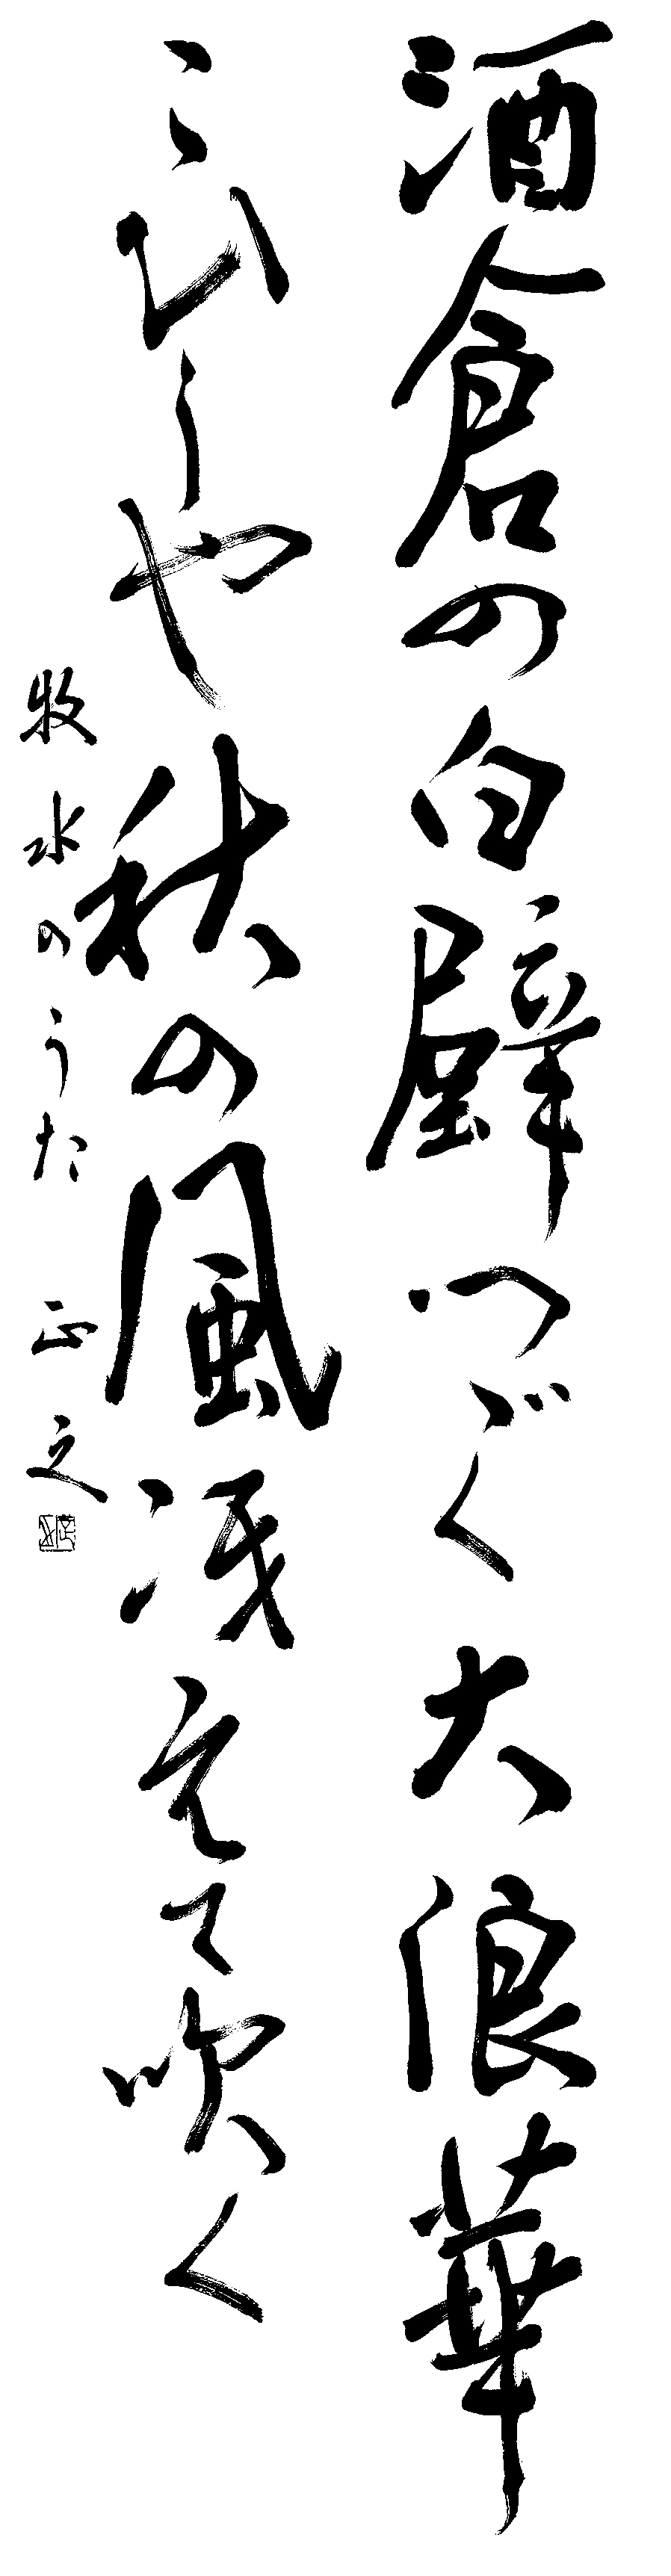 酒倉の白壁つゞく大浪華
こひしや秋の風冴えて吹く
牧水のうた 正之